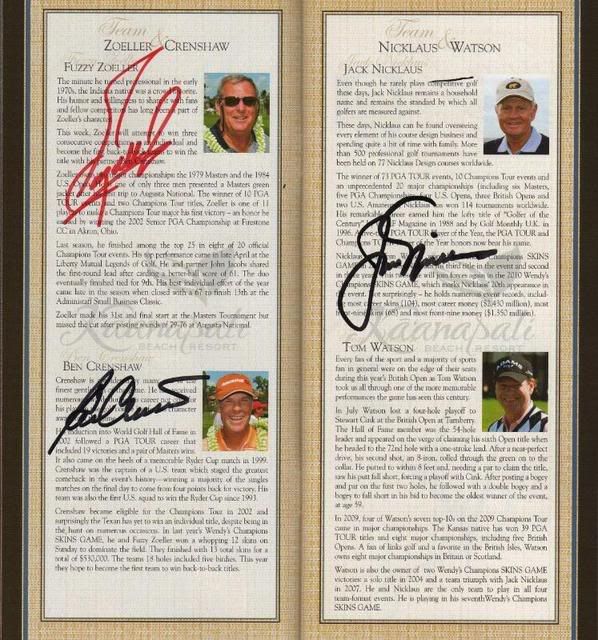 Team
&
ZOELLER CRENSHAW
FUZZY ZOELLER
The minute he professional in the early
1970s, the Indiana native was a crowd favorite.
His humor and willingness to share with fans
and fellow competitors has long been part of
Zoeller's character.
This week, Zoeller will attempt to win three
consecutive
become the first to win the
title with
championships: the 1979 Masters and the 1984
U.S. one of only three men presented a Masters green
trip to Augusta National. The winner of 10 PGA
TOUR and two Champions Tour titles, Zoeller is one of 11
players to make a Champions Tour major his first victory – an honor he
earned by winning the 2002 Senior PGA Championship at Firestone
CC in Akron, Ohio.
Last season, he finished among the top 25 in eight of 20 official
Champions Tour events. His top performance came in late April at the
Liberty Mutual Legends of Golf. He and partner John Jacobs shared
the first-round lead after carding a better-ball of 61. The duo
eventually finished tied for 9th. His best individual effort of the year
came late in the season when he closed with a 67 to finish 13th at the
Administaff Small Business Classic.
Zoeller made his 31st and final start at the Masters Tournament but
missed the cut after posting rounds of 79-76 at Augusta National.
Kaanapali
BEACH RESORT
Ben Crenshaw
BEN CRENSHAW
Crenshaw is considered many the
finest
numerous
not
his
away
His induction into World Golf Hall of Fame in
2002 followed a PGA TOUR career that
included 19 victories and a pair of Masters wins.
It also came on the heels of a memorable Ryder Cup match in 1999.
Crenshaw was the captain of a U.S. team which staged the greatest
comeback in the event's history—winning a majority of the singles
matches on the final day to come from four points back for victory. His
team was also the first U.S. squad to win the Ryder Cup since 1993.
Crenshaw became eligible for the Champions Tour in 2002 and
surprisingly the Texan has yet to win an individual title, despite being in
the hunt on numerous occasions. In last year's Wendy's Champions
SKINS GAME, he and Fuzzy Zoeller won a whopping 12 skins on
Sunday to dominate the field. They finished with 13 total skins for a
total of $530,000. The teams 18 holes included five birdies. This year
they hope to become the first team to win back-to-back titles.
Team
&
NICKLAUS WATSON
JACK NICKLAUS
Even though he rarely plays competitive golf
these days, Jack Nicklaus remains a household
name and remains the standard by which all
golfers are measured against.
These days, Nicklaus can be found overseeing
every element of his course design business and
spending quite a bit of time with family. More
than 500 professional golf tournaments have
been held on 77 Nicklaus Design courses worldwide.
The winner of 73 PGA TOUR events, 10 Champions Tour events and
an unprecedented 20 major championships (including six Masters,
five PGA Championships, four U.S. Opens, three British Opens and
two U.S. Amateurs), Nicklaus has won 114 tournaments worldwide.
His remarkable career earned him the lofty title of "Golfer of the
Century" by GOLF Magazine in 1988 and by Golf Monthly U.K. in
1996. PGA TOUR Player of the Year, the PGA TOUR and
Champions Tour of the Year honors now bear his name.
Nicklaus Champions SKINS
GAME third title in the event and second
in will join forces again in the 2010 Wendy's
Champions SKINS GAME, which marks Nicklaus' 20th appearance in
the event. Not surprisingly – he holds numerous event records, including
most career skins (104), most career money ($2.450 million), most
front-nine skins (65) and most front-nine money ($1.350 million).
Kaanapali
BEACH RESORT
TOM WATSON
Every fan of the sport and a majority of sports
fan in general were on the edge of their seats
during this year's British Open as Tom Watson
took us all through one of the more memorable
performances the game has seen this century.
In July Watson lost a four-hole playoff to
Stewart Cink at the British Open at Turnberry.
The Hall of Fame member was the 54-hole
leader and appeared on the verge of claiming his sixth Open title when
he headed to the 72nd hole with a one-stroke lead. After a near-perfect
drive, his second shot, an 8-iron, rolled through the green on to the
collar. He putted to within 8 feet and, needing a par to claim the title,
saw his putt fall short, forcing a playoff with Cink. After posting a bogey
and par on the first two holes, he followed with a double bogey and a
bogey to fall short in his bid to become the oldest winner of the event,
at age 59.
In 2009, four of Watson's seven top-10s on the 2009 Champions Tour
came in major championships. The Kansas native has won 39 PGA
TOUR titles and eight major championships, including five British
Opens. A fan of links golf and a favorite in the British Isles, Watson
owns eight major championships in Britain or Scotland.
Watson is also the owner of two Wendy's Champions SKINS GAME
victories: a solo title in 2004 and a team triumph with Jack Nicklaus
in 2007. He and Nicklaus are the only team to play in all four
team-format events. He is playing in his seventh Wendy's Champions
SKINS GAME.
ADAMS